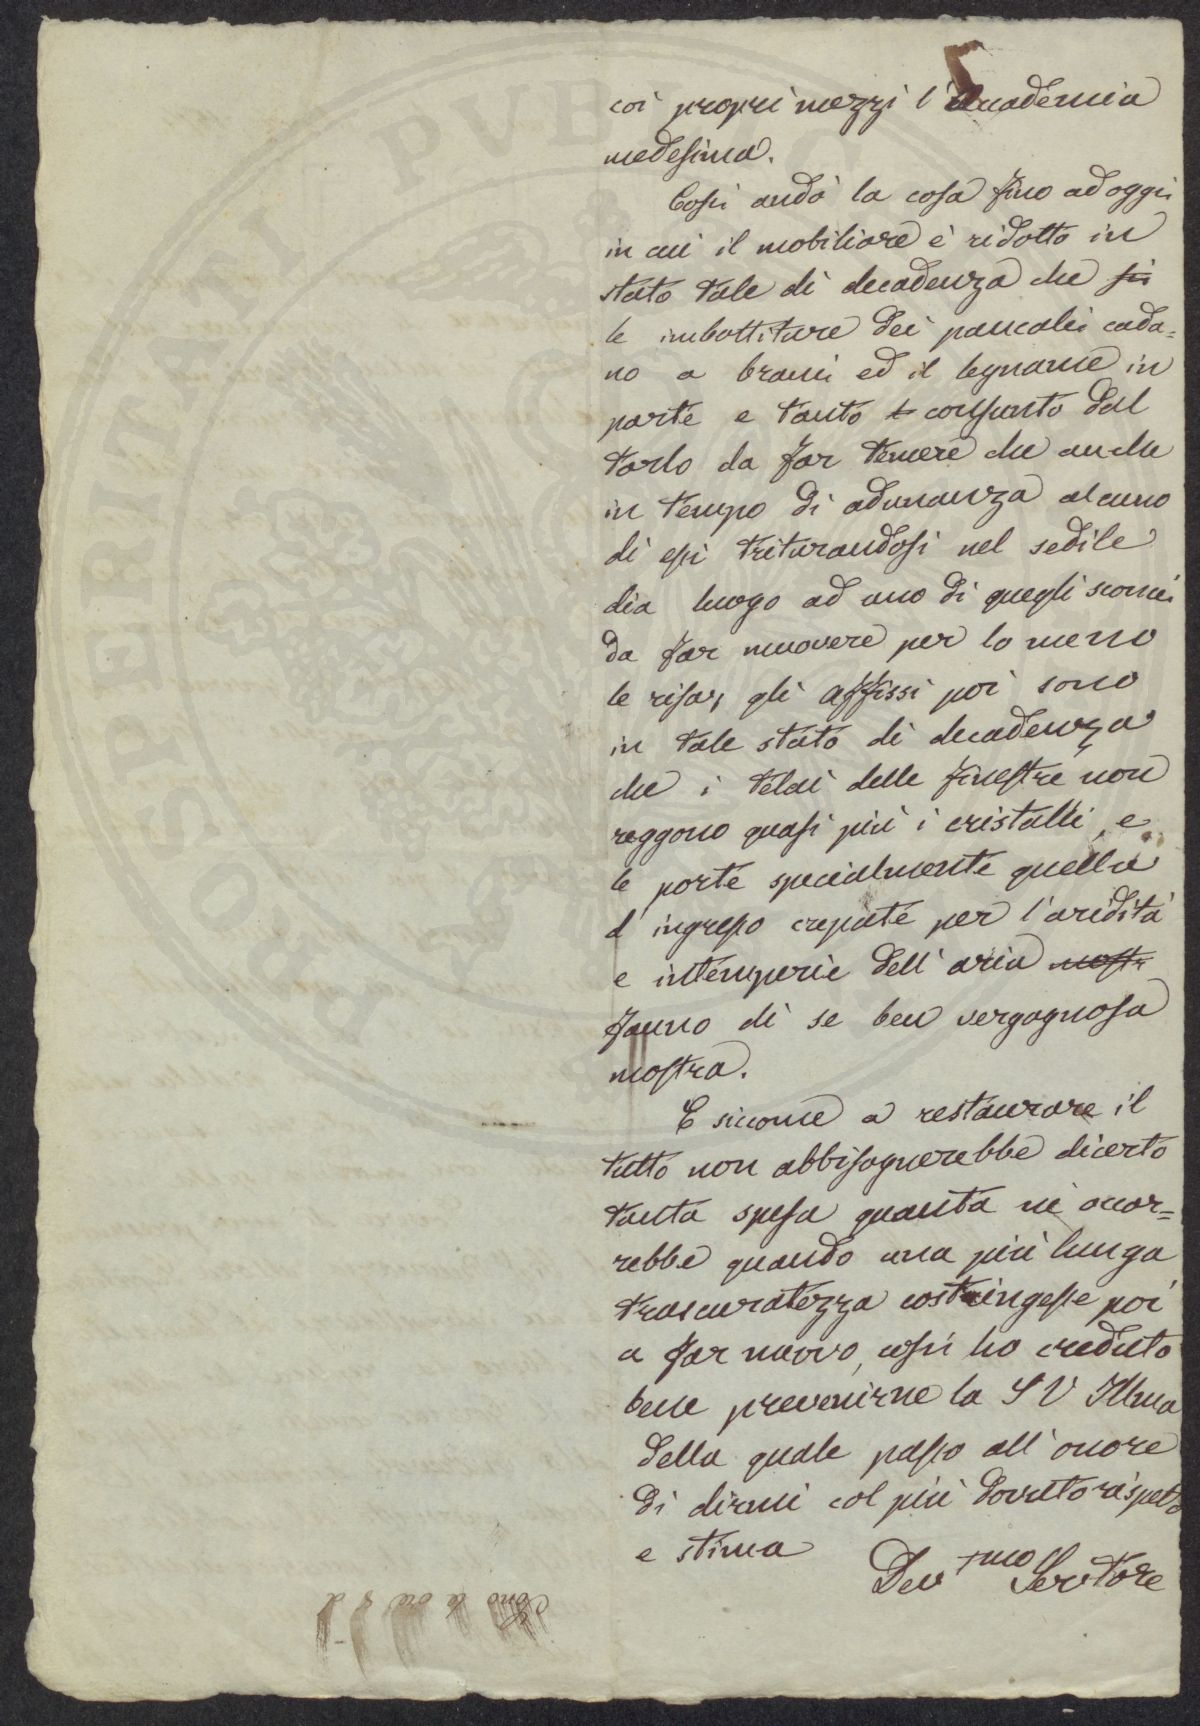 coi propri mezzi l'Accademia
medesima.
Così andò la cosa fino ad oggi
in cui il mobiliare è ridotto in
stato tale di decadenza che
le imbottiture dei pancalii cada=
no a brani ed il legname in
parte e tanto consunto dal
tarlo da far temere che anche
in tempo di adunanza alcuno
di essi triturandosi nel sedile
dia luogo ad uno di quegli sconci
da far muovere per lo meno
le risa, gli affissi poi sono
in tale stato di decadenza
che i telai delle finestre non
reggono quasi più i cristalli, e
le porte specialmente quella
d'ingresso crepate per l'aridità
e intemperie dell'aria mostr
fanno di se ben vergognosa
mostra.
E siccome a restaurare il
tutto non abbisognerebbe dicerto
tanta spesa quanta ne occor=
rebbe quando una più lunga
trascuratezza costringesse poi
a far nuovo, così ho creduto
bene prevenirne la S V Illma
della quale passo all'onore
di dirmi col più dovuto rispetto
e stima
Devtmo Servitore
Sono le ore 8 d
PVBLIC
POSPERITATI